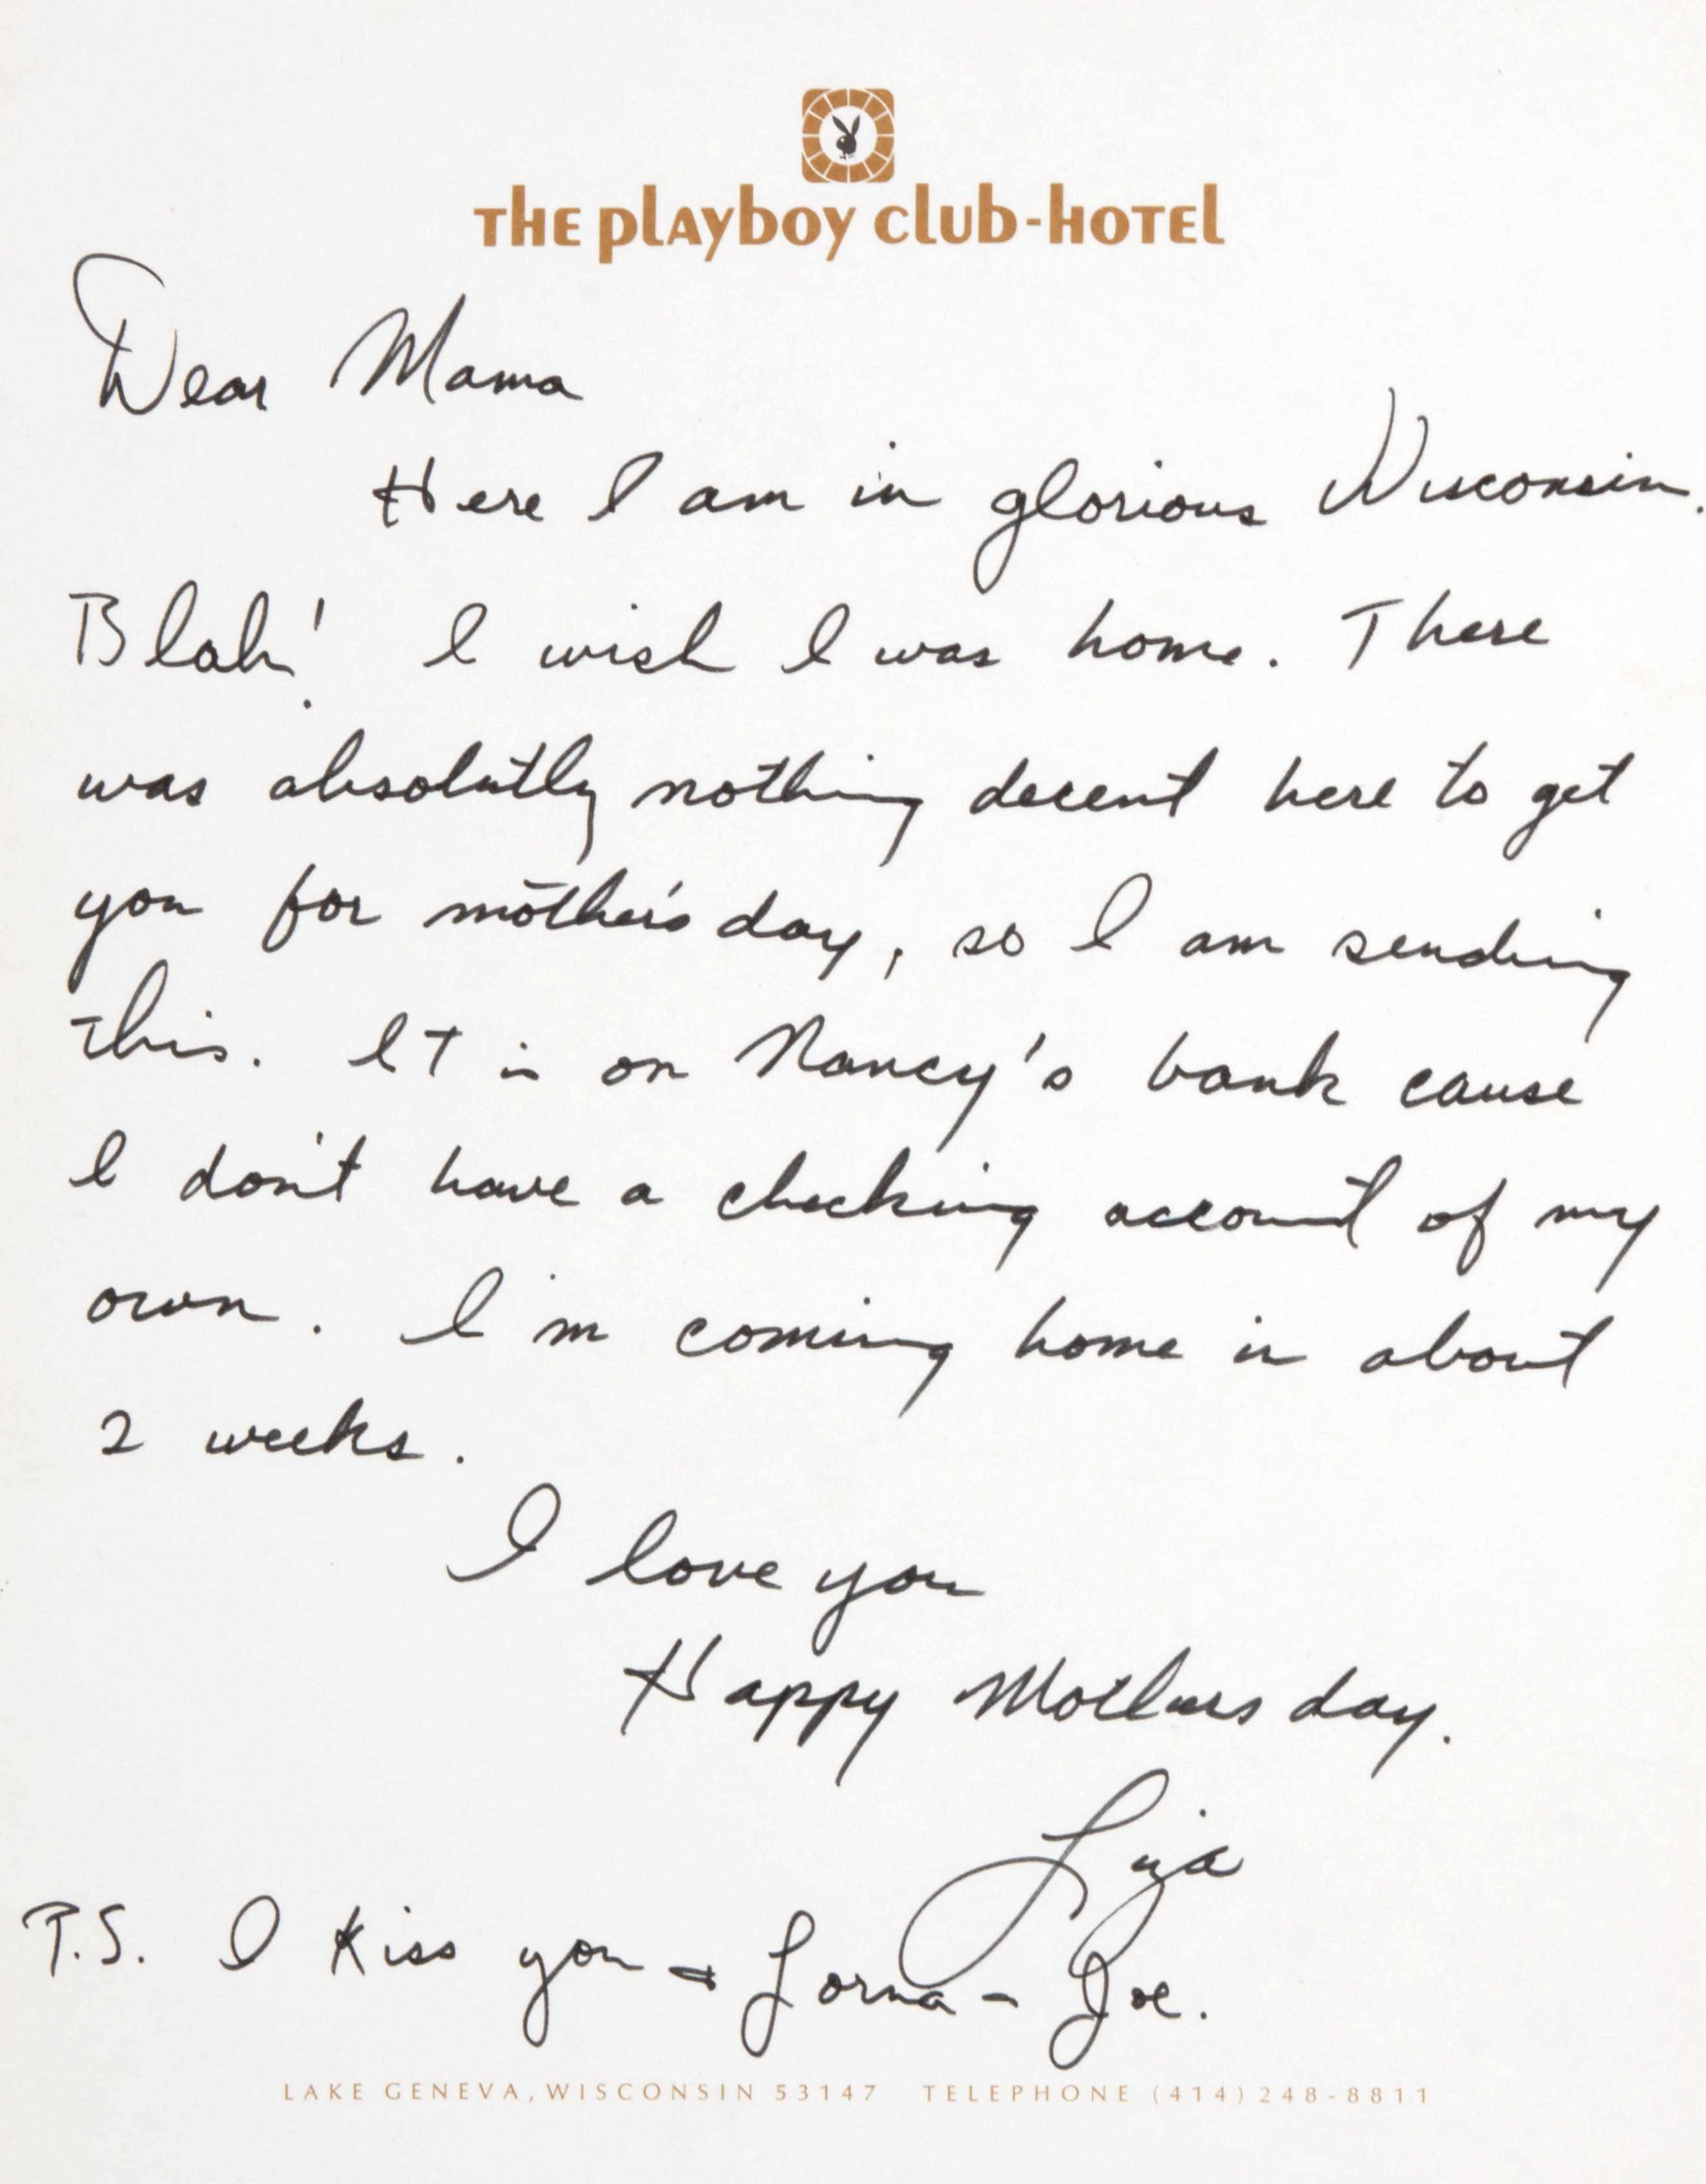 THE PLAYBOY CLUB-HOTEL
Dear Mama
Here I am in glorious Wisconsin.
Blah! I wish I was home. There
was absolutly nothing decent here to get
you for mother's day, so I am sending
this. It is on Nancy's bank cause
I don't have a checking account of my
own. I'm coming home in about
2 weeks.
I love you
Happy Mothers day.
Liza
P.S. I kiss you & Lorna - Joe.
LAKE GENEVA, WISCONSIN 53147 TELEPHONE (414) 248-8811